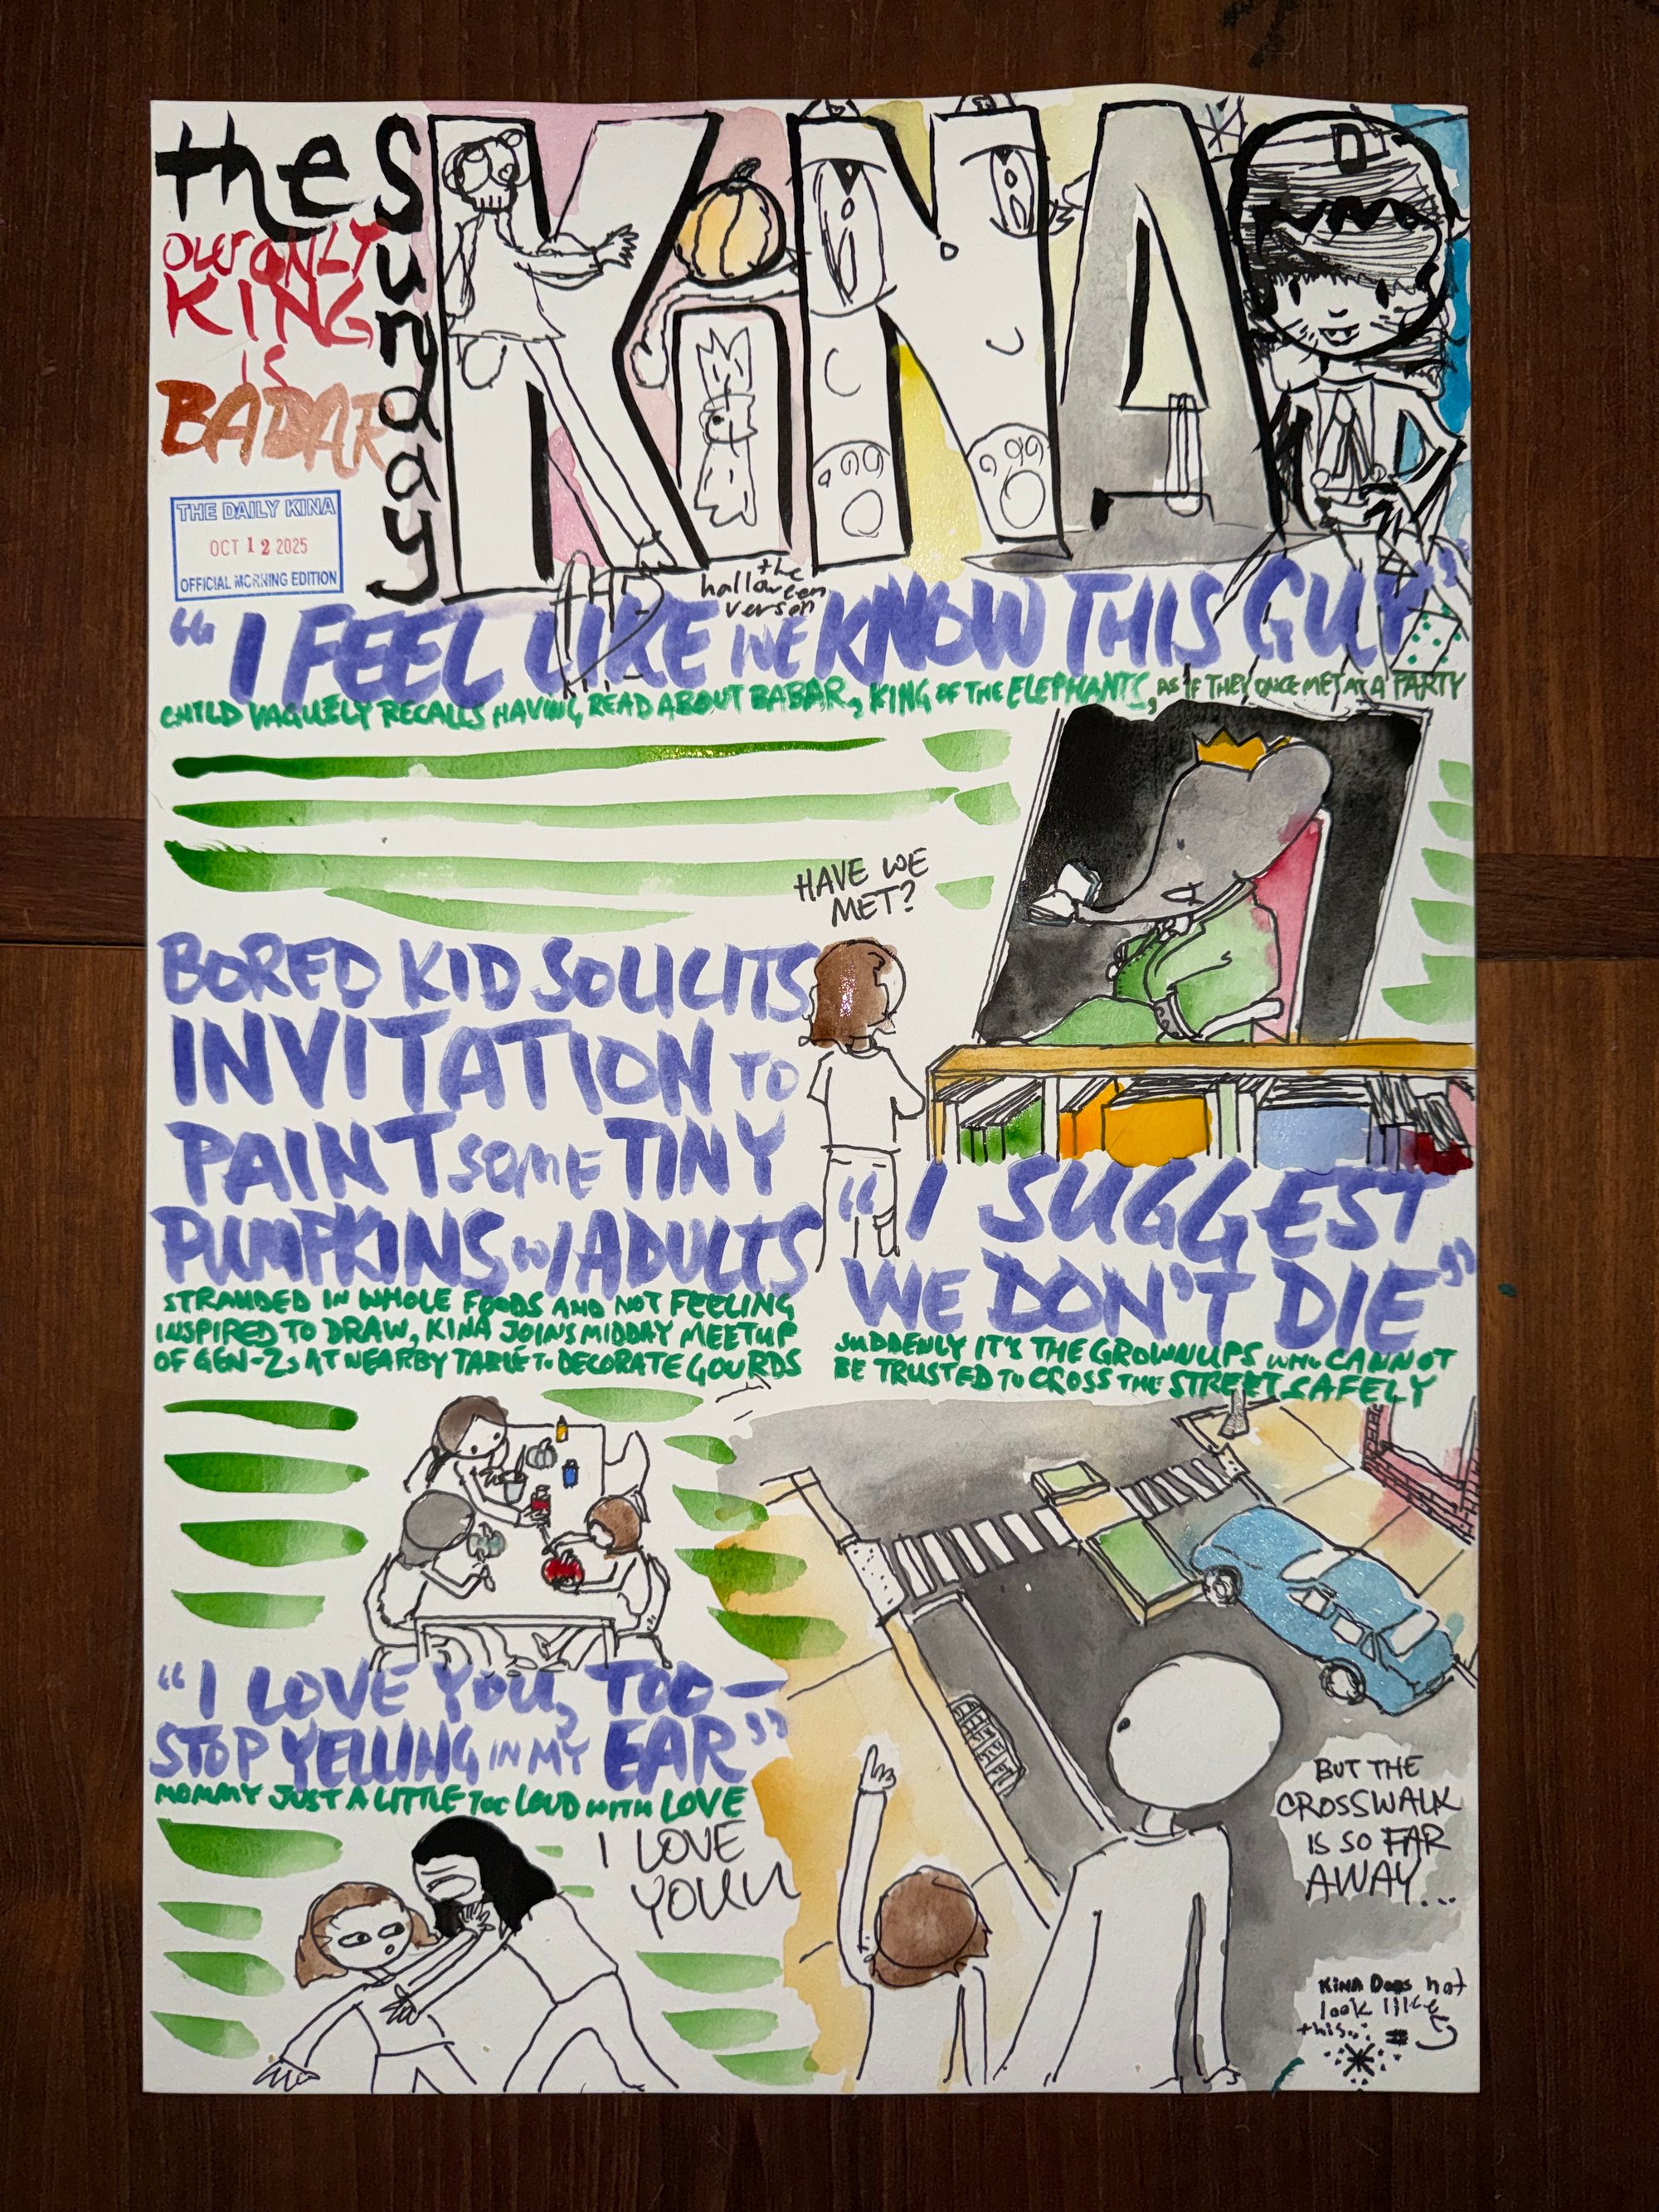 the Sunday KiNA
OUR ONLY
KING
IS
BABAR
THE DAILY KINA
OCT 12 2025
OFFICIAL MORNING EDITION
the
halloween
verson
"I FEEL LIKE WE KNOW THIS GUY"
CHILD VAGUELY RECALLS HAVING READ ABOUT BABAR, KING OF THE ELEPHANTS, AS IF THEY ONCE MET AT A PARTY
HAVE WE
MET?
BORED KID SOLICITS
INVITATION TO
PAINT SOME TINY
PUMPKINS W/ADULTS
STRANDED IN WHOLE FOODS AND NOT FEELING
INSPIRED TO DRAW, KINA JOINS MIDDAY MEETUP
OF GEN-Zs AT NEARBY TABLE TO DECORATE GOURDS
"I SUGGEST
WE DON'T DIE"
SUDDENLY IT'S THE GROWNUPS WHO CANNOT
BE TRUSTED TO CROSS THE STREET SAFELY
"I LOVE YOU, TOO—
STOP YELLING IN MY EAR"
MOMMY JUST A LITTLE TOO LOUD WITH LOVE
I LOVE
YOUUU
BUT THE
CROSSWALK
IS SO FAR
AWAY...
KiNA Does not
look like
this...